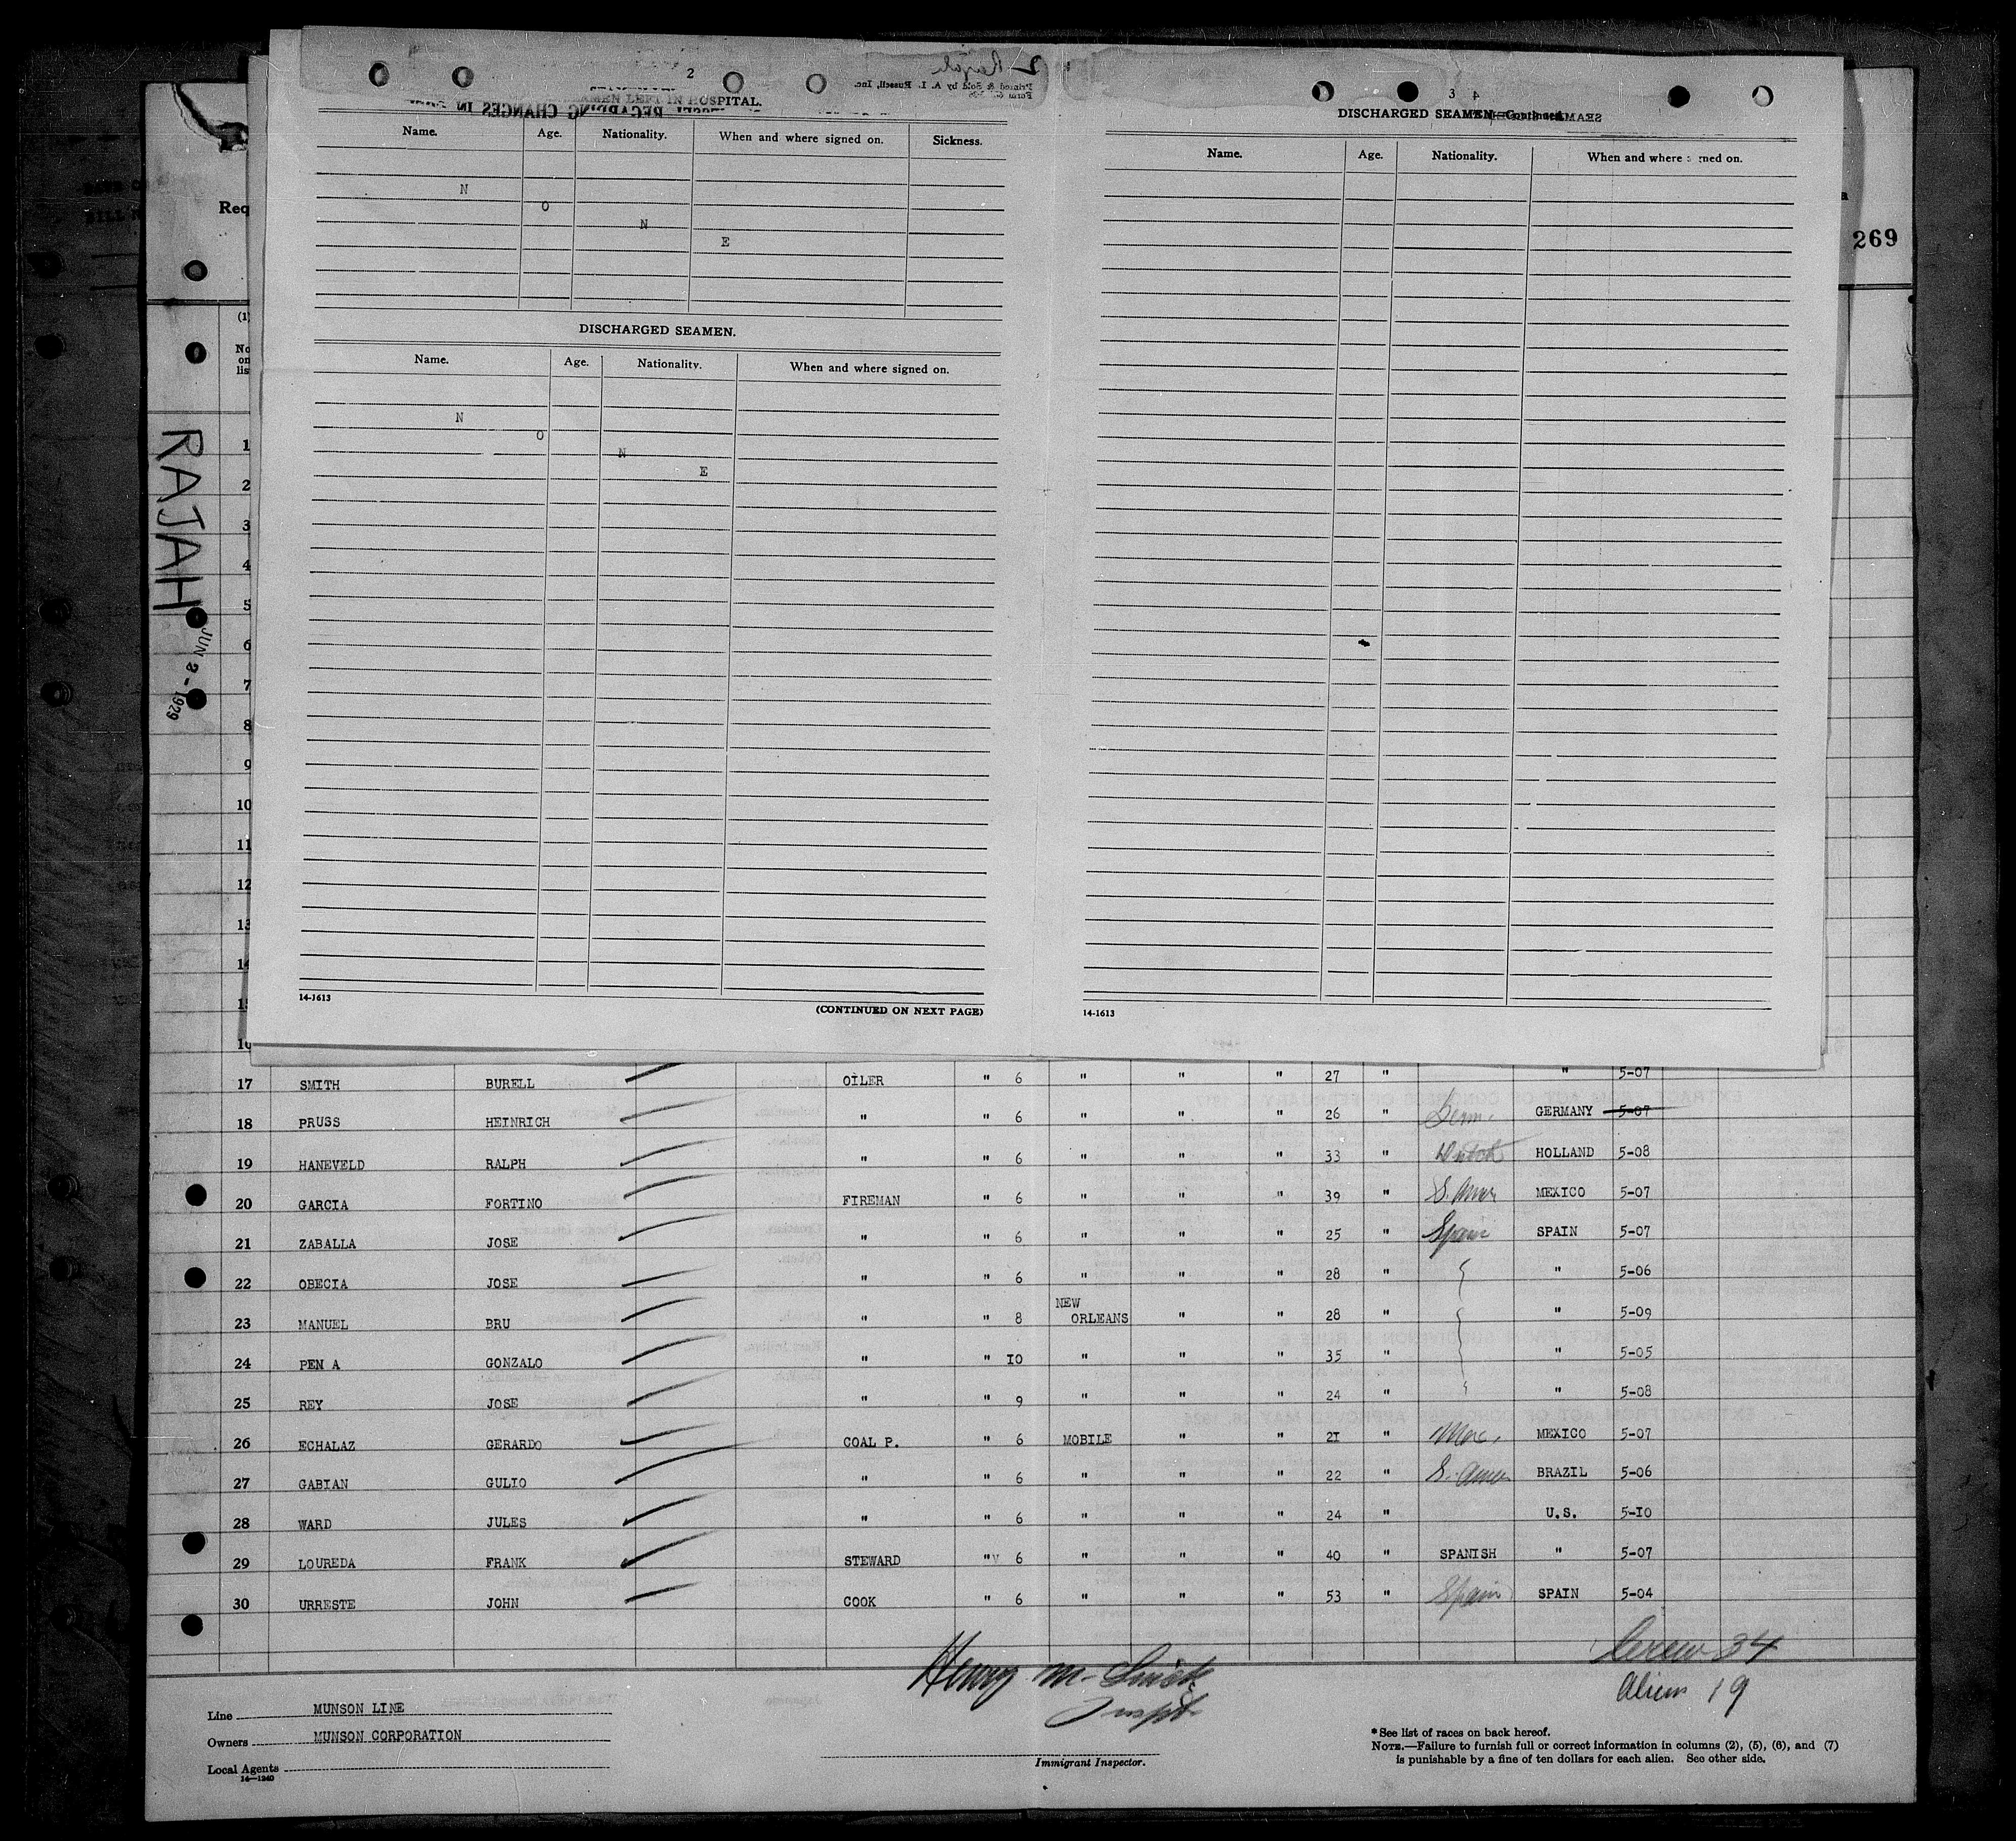 2
SEAMEN LEFT IN HOSPITAL.
Name. Age. Nationality. When and where signed on. Sickness.
N
O
N
E
DISCHARGED SEAMEN.
Name. Age. Nationality. When and where signed on.
N
O
N
E
14-1613
(CONTINUED ON NEXT PAGE)
2 Rajah
Printed & Sold by A. I. Russell, Inc.
3 4
DISCHARGED SEAMEN—Continued.
Name. Age. Nationality. When and where signed on.
14-1613
269
Req
(1)
No
on
lis
RAJAH
JUN 2 - 1929
1
2
3
4
5
6
7
8
9
10
11
12
13
14
15
16
17 SMITH BURELL OILER " 6 " " " 27 " " 5-07
18 PRUSS HEINRICH " " 6 " " " 26 " Germ. GERMANY 5-07
19 HANEVELD RALPH " " 6 " " " 33 " Dutch HOLLAND 5-08
20 GARCIA FORTINO FIREMAN " 6 " " " 39 " S. Amer MEXICO 5-07
21 ZABALLA JOSE " " 6 " " " 25 " Spain SPAIN 5-07
22 OBECIA JOSE " " 6 " " " 28 " " 5-06
23 MANUEL BRU " " 8 NEW ORLEANS " " 28 " " 5-09
24 PEN A GONZALO " " 10 " " " 35 " " 5-05
25 REY JOSE " " 9 " " " 24 " " 5-08
26 ECHALAZ GERARDO COAL P. " 6 MOBILE " " 21 " Mex. MEXICO 5-07
27 GABIAN GULIO " " 6 " " " 22 " S. Amer BRAZIL 5-06
28 WARD JULES " " 6 " " " 24 " U.S. 5-10
29 LOUREDA FRANK STEWARD "v 6 " " " 40 " SPANISH " 5-07
30 URRESTE JOHN COOK " 6 " " " 53 " Spain SPAIN 5-04
Crew 34
Alien 19
Henry M. Smith
Inspt.
Immigrant Inspector.
Line MUNSON LINE
Owners MUNSON CORPORATION
Local Agents
14—1240
*See list of races on back hereof.
NOTE.—Failure to furnish full or correct information in columns (2), (5), (6), and (7)
is punishable by a fine of ten dollars for each alien. See other side.